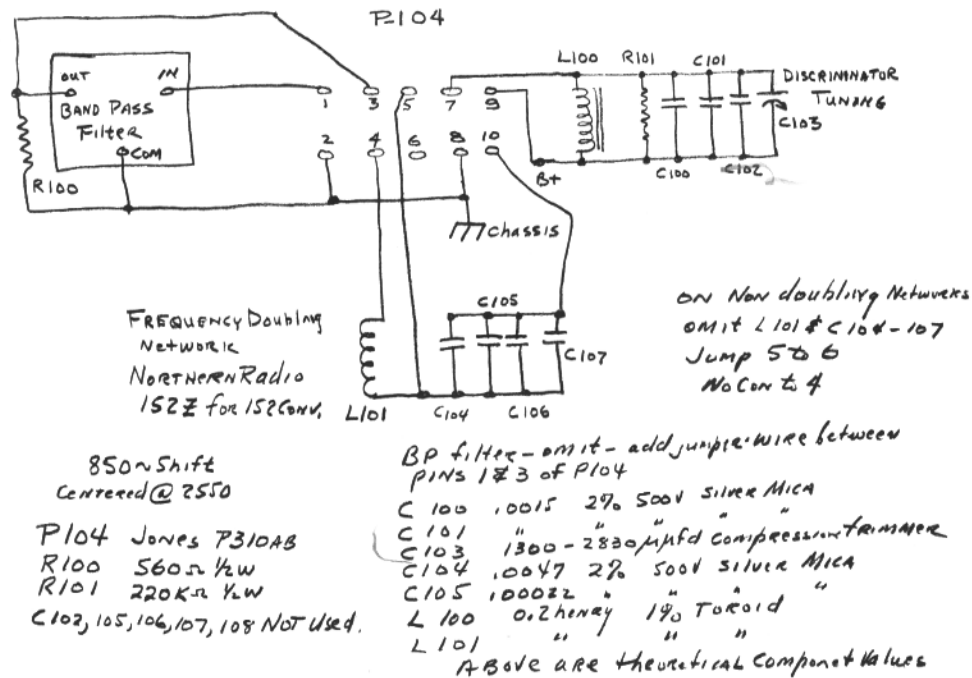 P-104
OUT
IN
BAND PASS
Filter
COM
R100
1
3
5
7
9
2
4
6
8
10
Chassis
B+
L100
R101
C101
DISCRIMINATOR
TUNING
C103
C100
C102
FREQUENCY Doubling
Network
NORTHERN Radio
152Z for 152 CONV.
L101
C105
C107
C104
C106
ON NON doubling Networks
OMIT L101 & C104-107
Jump 5 to 6
NO CON to 4
850~ Shift
Centered @ 2550
P104 Jones P310AB
R100 560Ω ½W
R101 220KΩ ½W
C102, 105, 106, 107, 108 NOT Used.
BP filter - omit - add jumper wire between
PINS 1 & 3 of P104
C 100 .0015 2% 500V Silver MICA
C 101 " " " " "
C 103 1300 - 2830 μμfd compression trimmer
C104 .0047 2% 500V Silver MICA
C105 .00022 " " " "
L 100 0.2 henry 1% TOROID
L 101 " " "
ABOVE ARE theoretical Componet Values